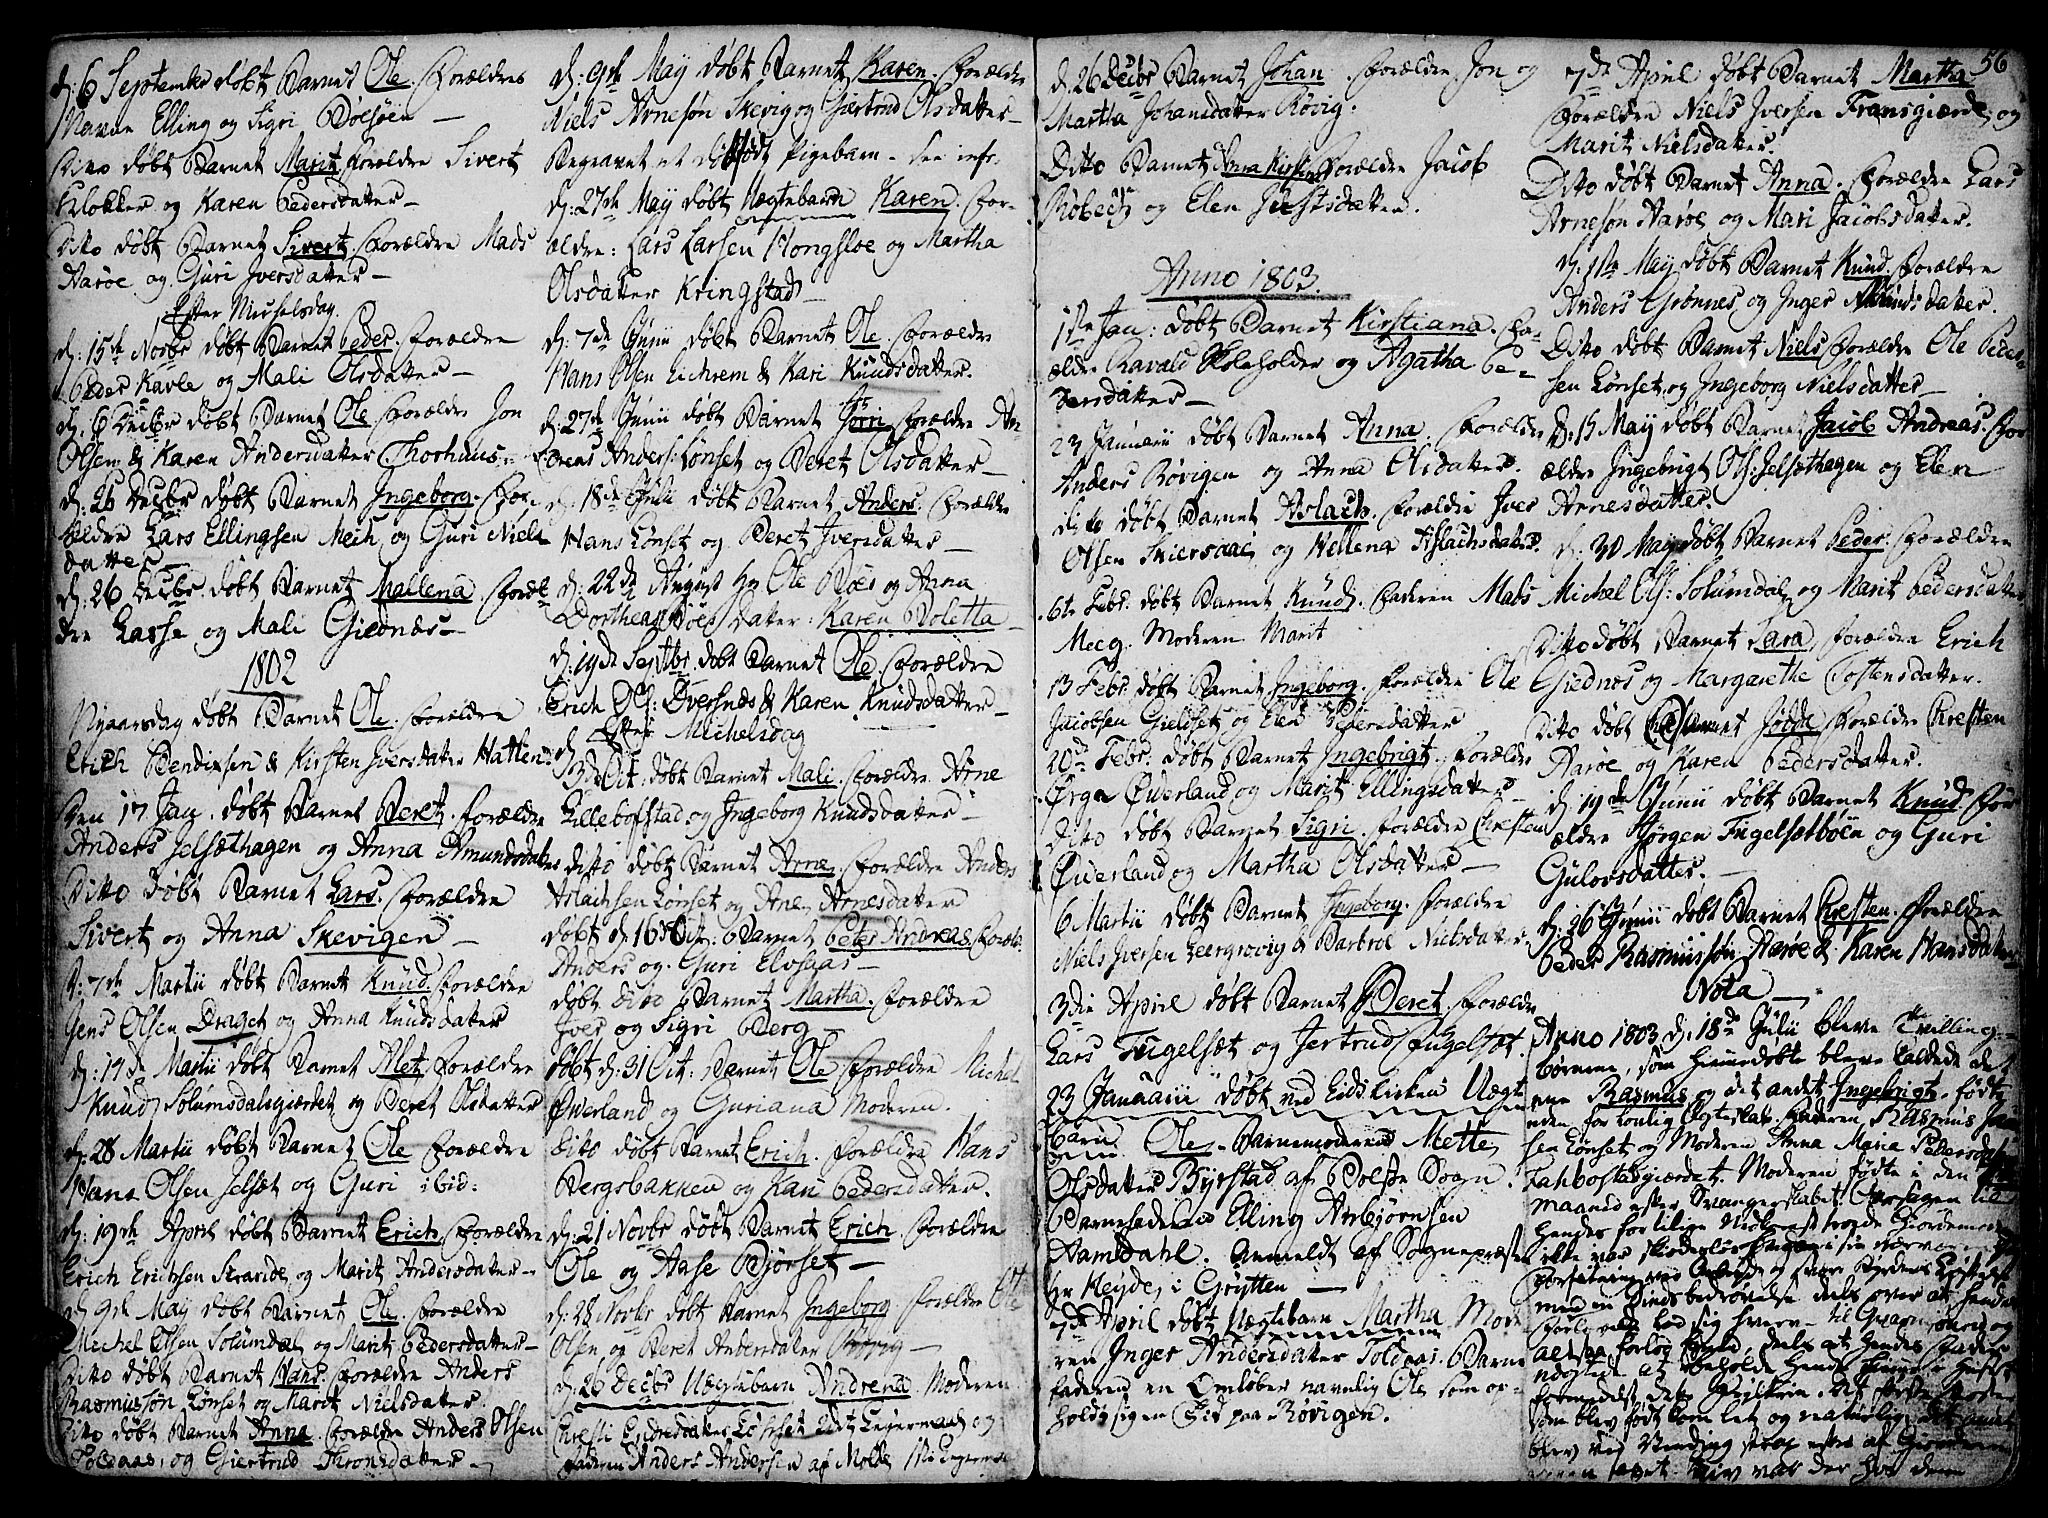 d: 6 September døbt Barnet Ole. Forældre
Elling og Sigri Bøesøen —
Dito døbt Barnet Marit. Forældre Sivert
Klokker og Karen Pedersdatter —
Dito døbt Barnet Sivert. Forældre Mads
Aarøe og Guri Iversdatter —
Efter Michelsdag.
d: 15de Novbr døbt Barnet Peder. Forældre
Peder Kavle og Mali Olsdatter —
d. 6 Decbr døbt Barnet Ole. Forældre Jon
Olsen & Karen Andersdatter Thorhuus.
d. 26 Decbr døbt Barnet Ingeborg. For-
ældre Lars Ellingsen Mech og Guri Niels
datter —
d: 26 Decbr døbt Barnet Mallena. Foræl-
dre Lasse og Mali Giednæs —
1802
Nyaarsdag døbt Barnet Ole. Forældre
Erich Bendixsen & Kirsten Iversdatter Hatlen
Den 17 Jan. døbt Barnet Beret. Forældre
Anders Jelsæthagen og Anna Amundsdatter
Dito døbt Barnet Lars. Forældre
Sivert og Anna Skevigen —
d: 7de Martii døbt Barnet Knud. Forældre
Jens Olsen Draget og Anna Knudsdatter
d: 14de Martii døbt Barnet Alet. Forældre
Knud Solumsdalsgiærdet og Beret Olsdatter
d: 28 Martii døbt Barnet Ole Forældre
Hans Olsen Jelsæt og Guri ibid:
d: 19de April døbt Barnet Erich. Forældre
Erich Erichsen Strande og Marit Andersdatter —
d: 9de May døbt Barnet Ole. Forældre
Michel Olsen Solumdal og Marit Pedersdatter —
Dito døbt Barnet Hans. Forældre Anders
Rasmussøn Lønset og Marit Nielsdatter.
Dito døbt Barnet Anna. Forældre Anders Olsen
Toldaas og Giertrud Thronsdatter —
d: 9de May døbt Barnet Karen. Forældre
Niels Arnesøn Skevig og Giertrud Olsdatter —
Begravet et dødfødt Pigebarn — see infr.
d: 27de May døbt Uægtebarn Karen. For-
ældre: Lars Larsen Kongsloe og Martha
Olsdatter Kringstad —
d: 7de Junii døbt Barnet Ole. Forældre
Hans Olsen Eichrem & Kari Knudsdatter.
d: 27de Junii døbt Barnet Jørri Forældre An-
dreas Anders: Lønset og Beret Olsdatter —
d: 18de Julii døbt Barnet Anders. Forældre
Hans Lønset og Beret Iversdatter —
d: 22de August Hr Ole Boes og Anna
Dorthea Boes Datter: Karen Boletta —
d: 19de Septbr døbt Barnet Ole. Forældre
Erich Ols: Oversnæs & Karen Knudsdatter —
Efter Michelsdag
d 3de Oct. døbt Barnet Mali. Forældre Arne
Lillebostad og Ingeborg Knudsdatter —
dito døbt Barnet Arne. Forældre Anders
Aslachsen Lønset og Ane Arnesdatter
døbt d. 16 Oct. Barnet Peter Andreas. Foræl:
Anders og Guri Elvsaas —
døbt dito Barnet Martha. Forældre
Iver og Sigri Berg
døbt d: 31 Oct. Barnet Ole Forældre Michel
Øverland og Guriana Moderen.
dito døbt Barnet Erich. Forældre Hans
Bergsbakken og Kari Pedersdatter.
d: 21 Novbr døbt Barnet Erich. Forældre
Ole og Aase Bjørset —
d: 28 Novbr døbt Barnet Ingeborg. Forældre Ole
Olsen og Beret Andersdatter Røvig —
d: 26 Decbr Uægtebarn Andrena. Moderen
Christi Endresdatter Lønset 2det Leiermaal og
faderen Anders Andersen af Molde 1ste Leiermaal
d. 26 Decbr Barnet Johan. Forældre Jon og
Martha Johansdatter Røvig.
Dito Barnet Anna Kirstin Forældre Jacob
Røbech og Elen Justsdatter.
Anno 1803.
1ste Jan: døbt Barnet Kirstiana. For-
ældre Ravald Holeholder og Agatha Pe-
dersdatter —
23 Januarii døbt Barnet Anna. Forældre
Anders Bøvigen og Anna Olsdatter.
dito døbt Barnet Aslach. Forældre Iver
Olsen Skiersaae og Hellena Aslachsdatter.
6te Febr. døbt Barnet Knud. Faderen Mats
Mecg. Moderen Marit
13 Febr. døbt Barnet Ingeborg. Forældre Ole
Jacobsen Gieldset og Elen Pedersdatter
20de Febr. døbt Barnet Ingebrigt. Forældre
Ørga Øverland og Marit Ellingsdatter —
Dito døbt Barnet Sigri. Forældre Chresten
Øverland og Martha Olsdatter —
6 Martii døbt Barnet Ingeborg. Forældre
Niels Iversen Leergrovig & Barbroe Nielsdatter.
3die April døbt Barnet Beret. Forældre
Lars Fugelsæt og Jertrud Fugelsæt.
23 Januarii døbt ved Eidskirken Uægt
barn Ole. Barnemoderen Mette
Olsdatter Byrstad af Bolsøe Sogn.
Barnefaderen Elling Asbjørnsen
Hamsdahl. Anmeldt af Sognepræsten
Hr Heyde i Grytten —
7de April døbt Uægtebarn Martha. Mode
ren Inger Andersdatter Toldaas. Barne
faderen en Omløber navnlig Ole som op-
holdt sig en Tid paa Røvigen.
56
7de April døbt Barnet Martha
Forældre Niels Iversen Fransgiærde og
Marit Nielsdatter.
Dito døbt Barnet Anna. Forældre Lars
Arnesøn Aarøe og Mari Jacobsdatter.
d: 1ste May døbt Barnet Knud. Forældre
Anders Grønnes og Inger Amundsdatter.
Dito døbt Barnet Niels Forældre Ole Peder-
sen Lønset og Ingeborg Nielsdatter —
d. 15 May døbt Barnet Jacob Andreas. For
ældre Ingebrigt Ols: Jelsæthagen og Elen
Arnesdatter.
d. 30 May døbt Barnet Peder. Forældre
Michel Ols: Solumdal og Marit Pedersdatter
Dito døbt Barnet Sara. Forældre Erich
Giednæs og Margarethe Tostensdatter.
Dito døbt Barnet Jødde. Forældre Chresten
Aarøe og Karen Pedersdatter.
d: 19de Junii døbt Barnet Knud. For
ældre Jørgen Fugelsætbøen og Guri
Gulovsdatter. —
d. 26 Junii døbt Barnet Chresten. Forældre
Peder Rasmussøn Aarøe & Karen Hansdatter
Nota —
Anno 1803 d. 18de Julii bleve Tvilling-
børnene, som hiemmedøbte bleve kaldede det
ene Rasmus og det andet Ingebrigt, fødte
uden for lovlig Ægteskab. Faderen Rasmus Jan
sen Lønset og Moderen Anna Maria Pedersdatter
Fahbostadgiærdet. Moderen fødte i den
maaned efter Svangerskabet. Aarsagen til
hendes for tilige Nedkomst troede Giordemoderen
ikke var skiødesløshed
med en Sindsbedrøvelse deels over at hendes
altsaa forlog hende, deels at hendes Fader
nægtede at beholde hende længer i Huset
formedelst dette Tilfælde. Det første Barn
som blev født kom let og naturlig, det andet
blev ved Vending strax efter af Giordemo
deren taget. Liv var der hos dem